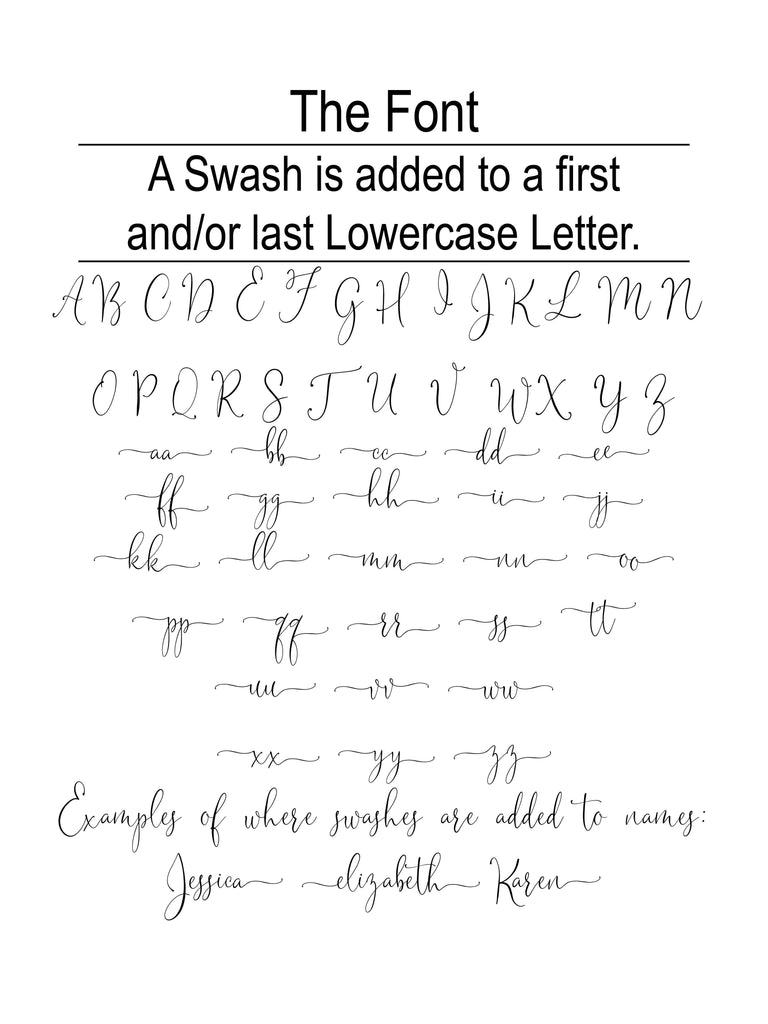 The Font
A Swash is added to a first
and/or last Lowercase Letter.
A B C D E F G H I J K L M N
O P Q R S T U V W X Y Z
aa bb cc dd ee
ff gg hh ii jj
kk ll mm nn oo
pp qq rr ss tt
uu vv ww
xx yy zz
Examples of where swashes are added to names:
Jessica elizabeth Karen